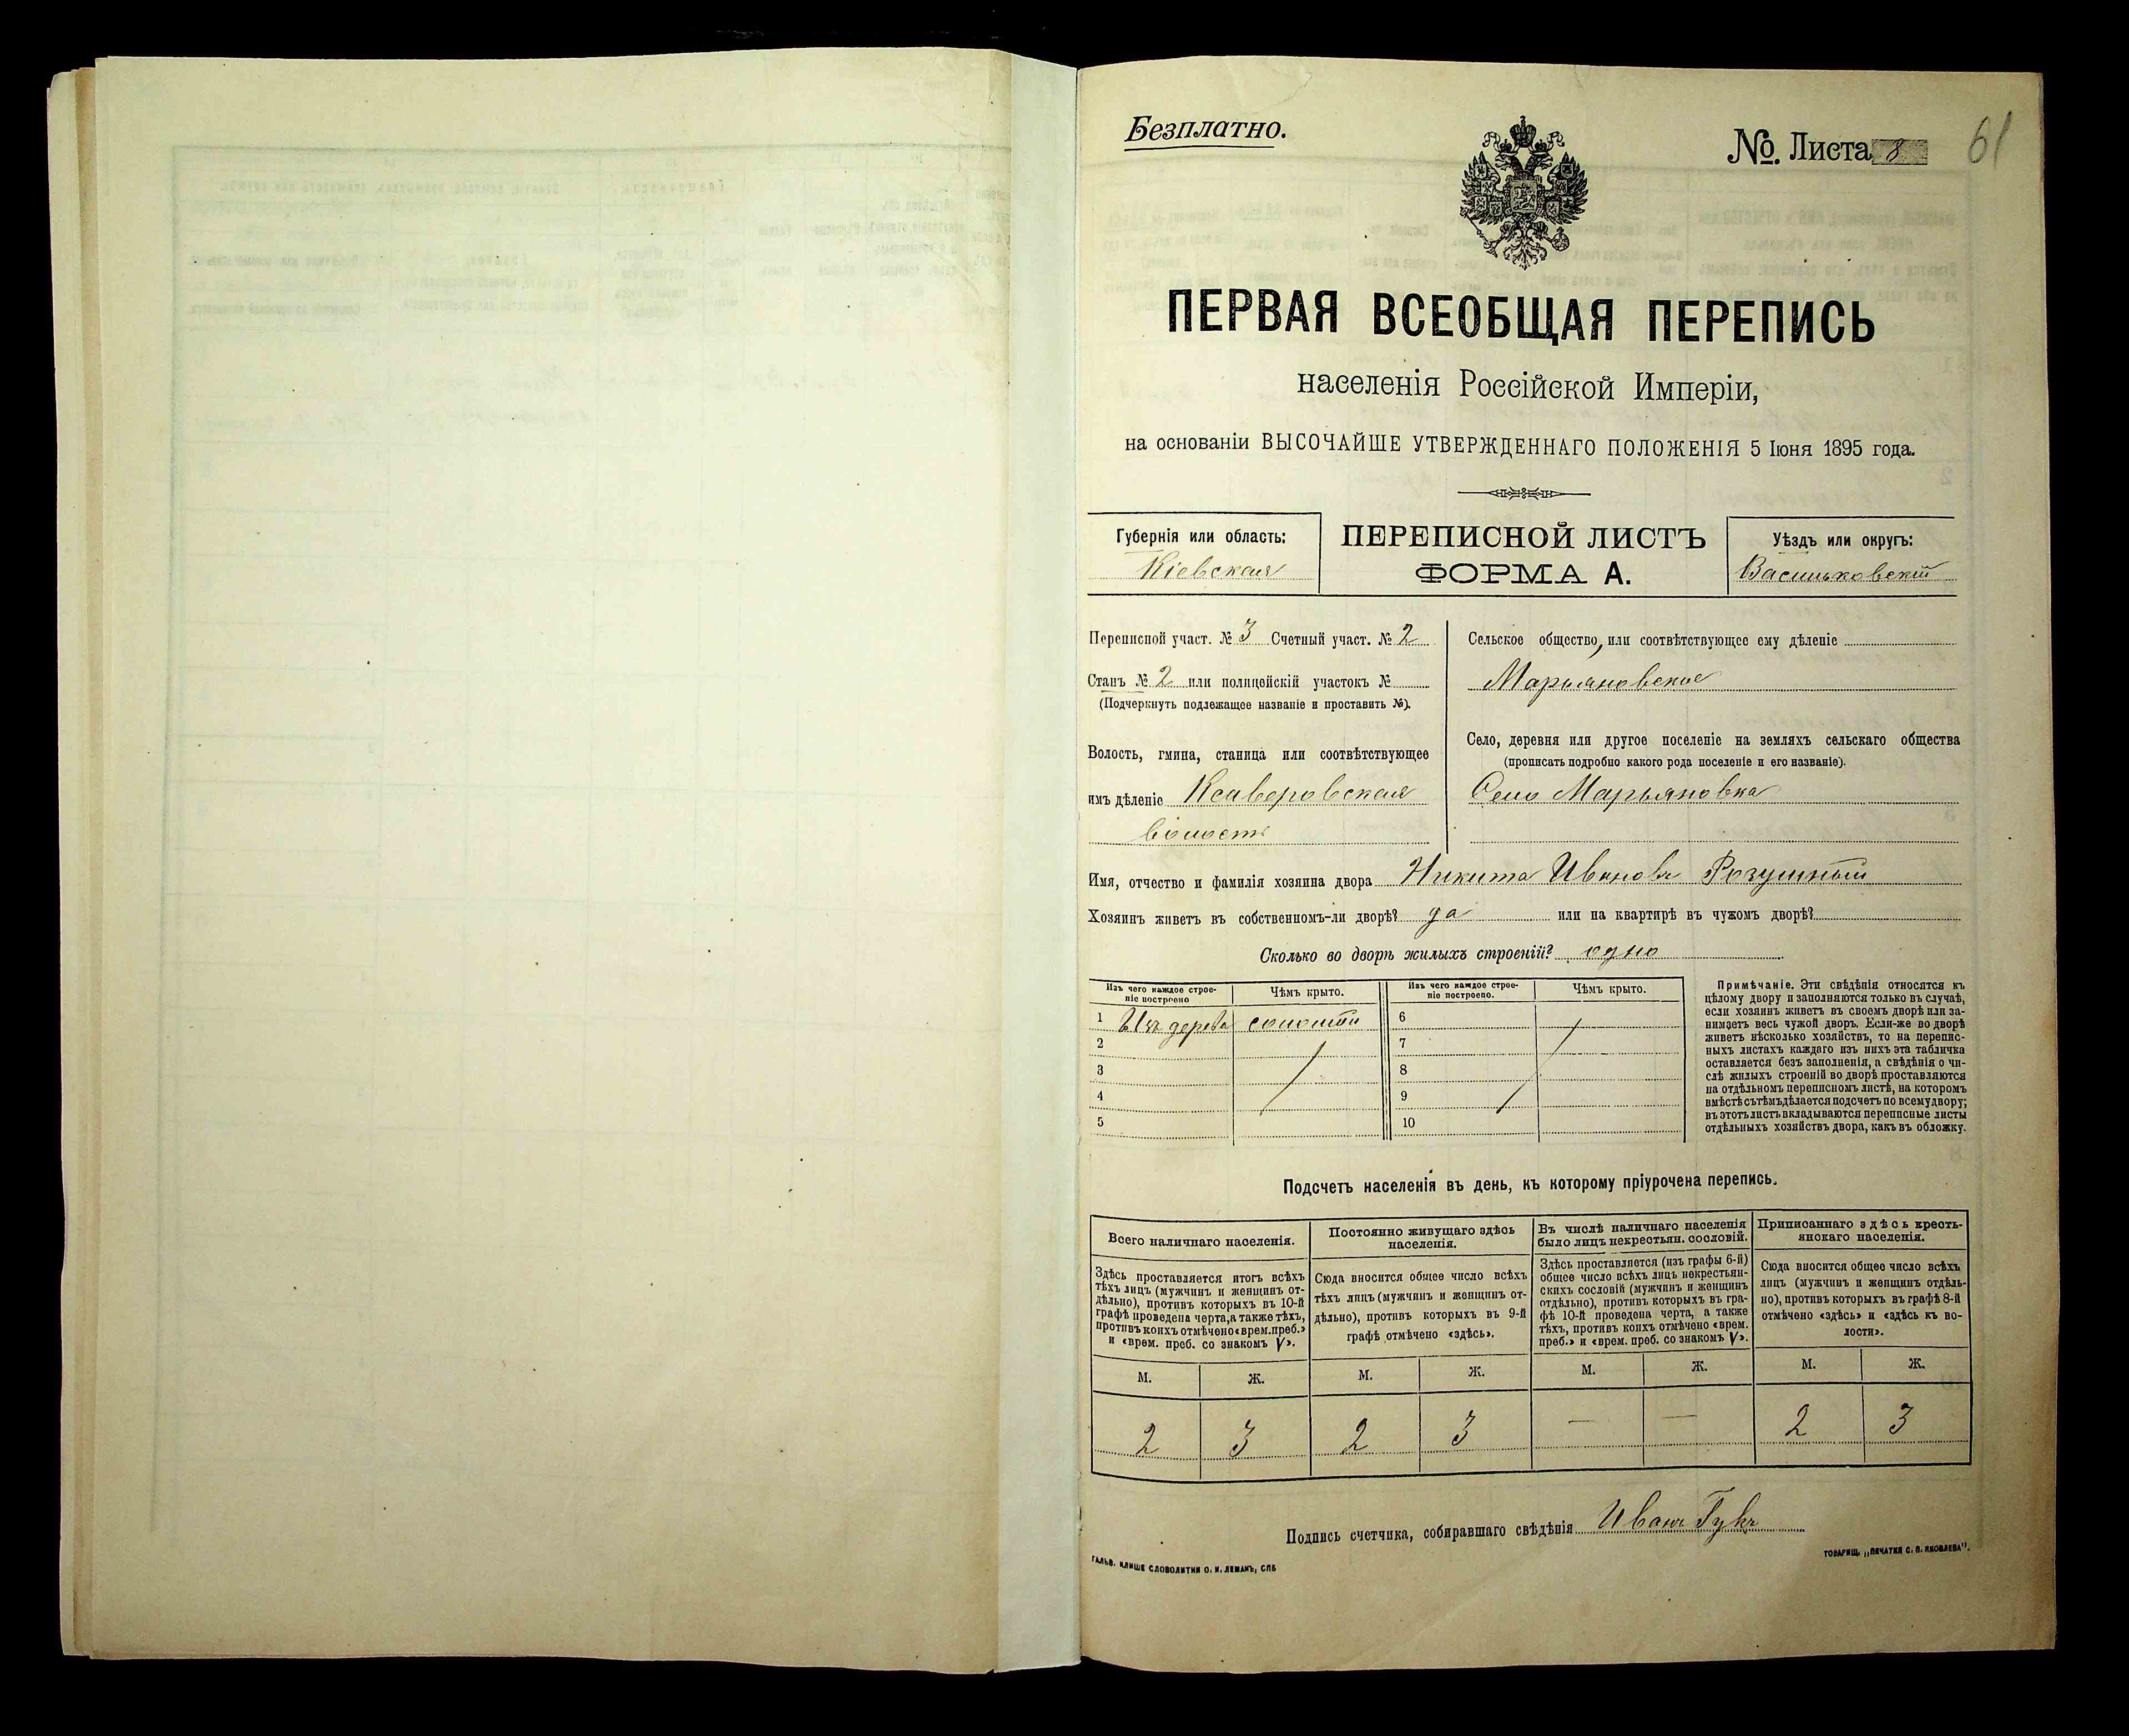 Безплатно.
№. Листа 8
61
ПЕРВАЯ ВСЕОБЩАЯ ПЕРЕПИСЬ
населенія Россійской Имперіи,
на основаніи ВЫСОЧАЙШЕ УТВЕРЖДЕННАГО ПОЛОЖЕНІЯ 5 Іюня 1895 года.
Губернія или область:
Кіевская
ПЕРЕПИСНОЙ ЛИСТЪ
ФОРМА А.
Уѣздъ или округъ:
Васильковскій
Переписной участ. № 3 Счетный участ. № 2
Станъ № 2 или полицейскій участокъ №
(Подчеркнуть подлежащее названіе и проставить №).
Волость, гмина, станица или соотвѣтствующее
имъ дѣленіе Ксаверовская
волость
Сельское общество, или соотвѣтствующее ему дѣленіе
Марьяновское
Село, деревня или другое поселеніе на земляхъ сельскаго общества
(прописать подробно какого рода поселеніе и его названіе).
Село Марьяновка
Имя, отчество и фамилія хозяина двора Никита Ивановъ
Хозяинъ живетъ въ собственномъ-ли дворѣ? да или на квартирѣ въ чужомъ дворѣ?
Сколько во дворѣ жилыхъ строеній? одно
Изъ чего каждое строе-
ніе построено
Чѣмъ крыто.
1 Изъ дерева соломой
2
3
4
5
Изъ чего каждое строе-
ніе построено.
Чѣмъ крыто.
6
7
8
9
10
Примѣчаніе. Эти свѣдѣнія относятся къ
цѣлому двору и заполняются только въ случаѣ,
если хозяинъ живетъ въ своемъ дворѣ или за-
нимаетъ весь чужой дворъ. Если-же во дворѣ
живетъ нѣсколько хозяйствъ, то на перепис-
ныхъ листахъ каждаго изъ нихъ эта табличка
оставляется безъ заполненія, а свѣдѣнія о чи-
слѣ жилыхъ строеній во дворѣ проставляются
на отдѣльномъ переписномъ листѣ, на которомъ
вмѣстѣ съ тѣмъ дѣлается подсчетъ по всему двору;
въ этотъ листъ вкладываются переписные листы
отдѣльныхъ хозяйствъ двора, какъ въ обложку.
Подсчетъ населенія въ день, къ которому пріурочена перепись.
Всего наличнаго населенія.
Здѣсь проставляется итогъ всѣхъ
тѣхъ лицъ (мужчинъ и женщинъ от-
дѣльно), противъ которыхъ въ 10-й
графѣ проведена черта, а также тѣхъ,
противъ коихъ отмѣчено «врем. преб.»
и «врем. преб. со знакомъ V».
М. Ж.
2 3
Постоянно живущаго здѣсь
населенія.
Сюда вносится общее число всѣхъ
тѣхъ лицъ (мужчинъ и женщинъ от-
дѣльно), противъ которыхъ въ 9-й
графѣ отмѣчено «здѣсь».
М. Ж.
2 3
Въ числѣ наличнаго населенія
было лицъ некрестьян. сословій.
Здѣсь проставляется (изъ графы 6-й)
общее число всѣхъ лицъ некрестьян-
скихъ сословій (мужчинъ и женщинъ
отдѣльно), противъ которыхъ въ гра-
фѣ 10-й проведена черта, а также
тѣхъ, противъ коихъ отмѣчено «врем.
преб.» и «врем. преб. со знакомъ V».
М. Ж.
— —
Приписаннаго здѣсь кресть-
янскаго населенія.
Сюда вносится общее число всѣхъ
лицъ (мужчинъ и женщинъ отдѣль-
но), противъ которыхъ въ графѣ 8-й
отмѣчено «здѣсь» и «здѣсь къ во-
лости».
М. Ж.
2 3
Подпись счетчика, собиравшаго свѣдѣнія Иванъ Гукъ
ГАЛЬВ. КЛИШЕ СЛОВОЛИТНИ О. И. ЛЕМАНЪ, СПБ
ТОВАРИЩ. „ПЕЧАТНЯ С. П. ЯКОВЛЕВА".